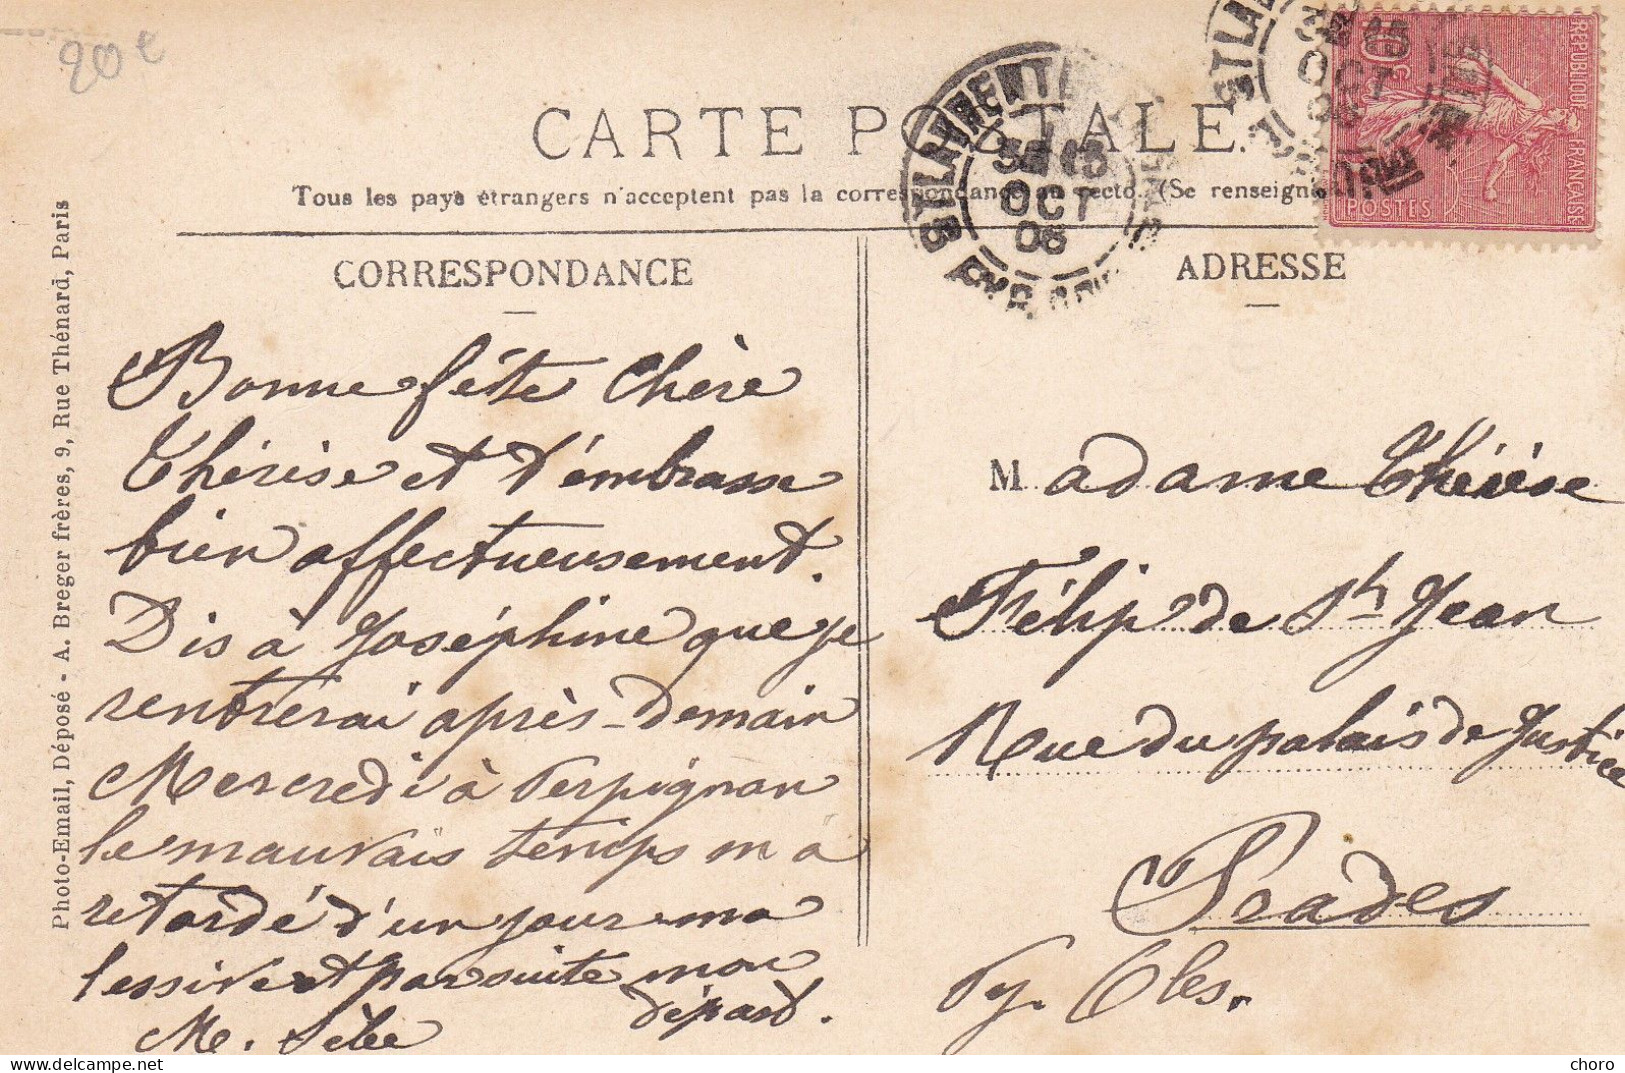 20 €
CARTE POSTALE
Tous les pays étrangers n'acceptent pas la correspondance au recto. (Se renseigne
CORRESPONDANCE
ADRESSE
REPUBLIQUE FRANÇAISE
POSTES
10 c
ST LAURENT
15
OCT
06
ST LA
15
OCT
Photo-Email, Déposé - A. Breger frères, 9, Rue Thénard, Paris
Bonne fête Chère
Thérèse et t'embrasse
bien affectueusement.
Dis à Joséphine que je
rentrerai après-demain
Mercredi à Perpignan
le mauvais temps m'a
retardé d'un jour ma
lessive et par suite mon
départ.
M.
Madame Thérèse
Félip de St Jean
Rue du palais de Justice
Prades
Py. Oles.
Delcampe.net
choro